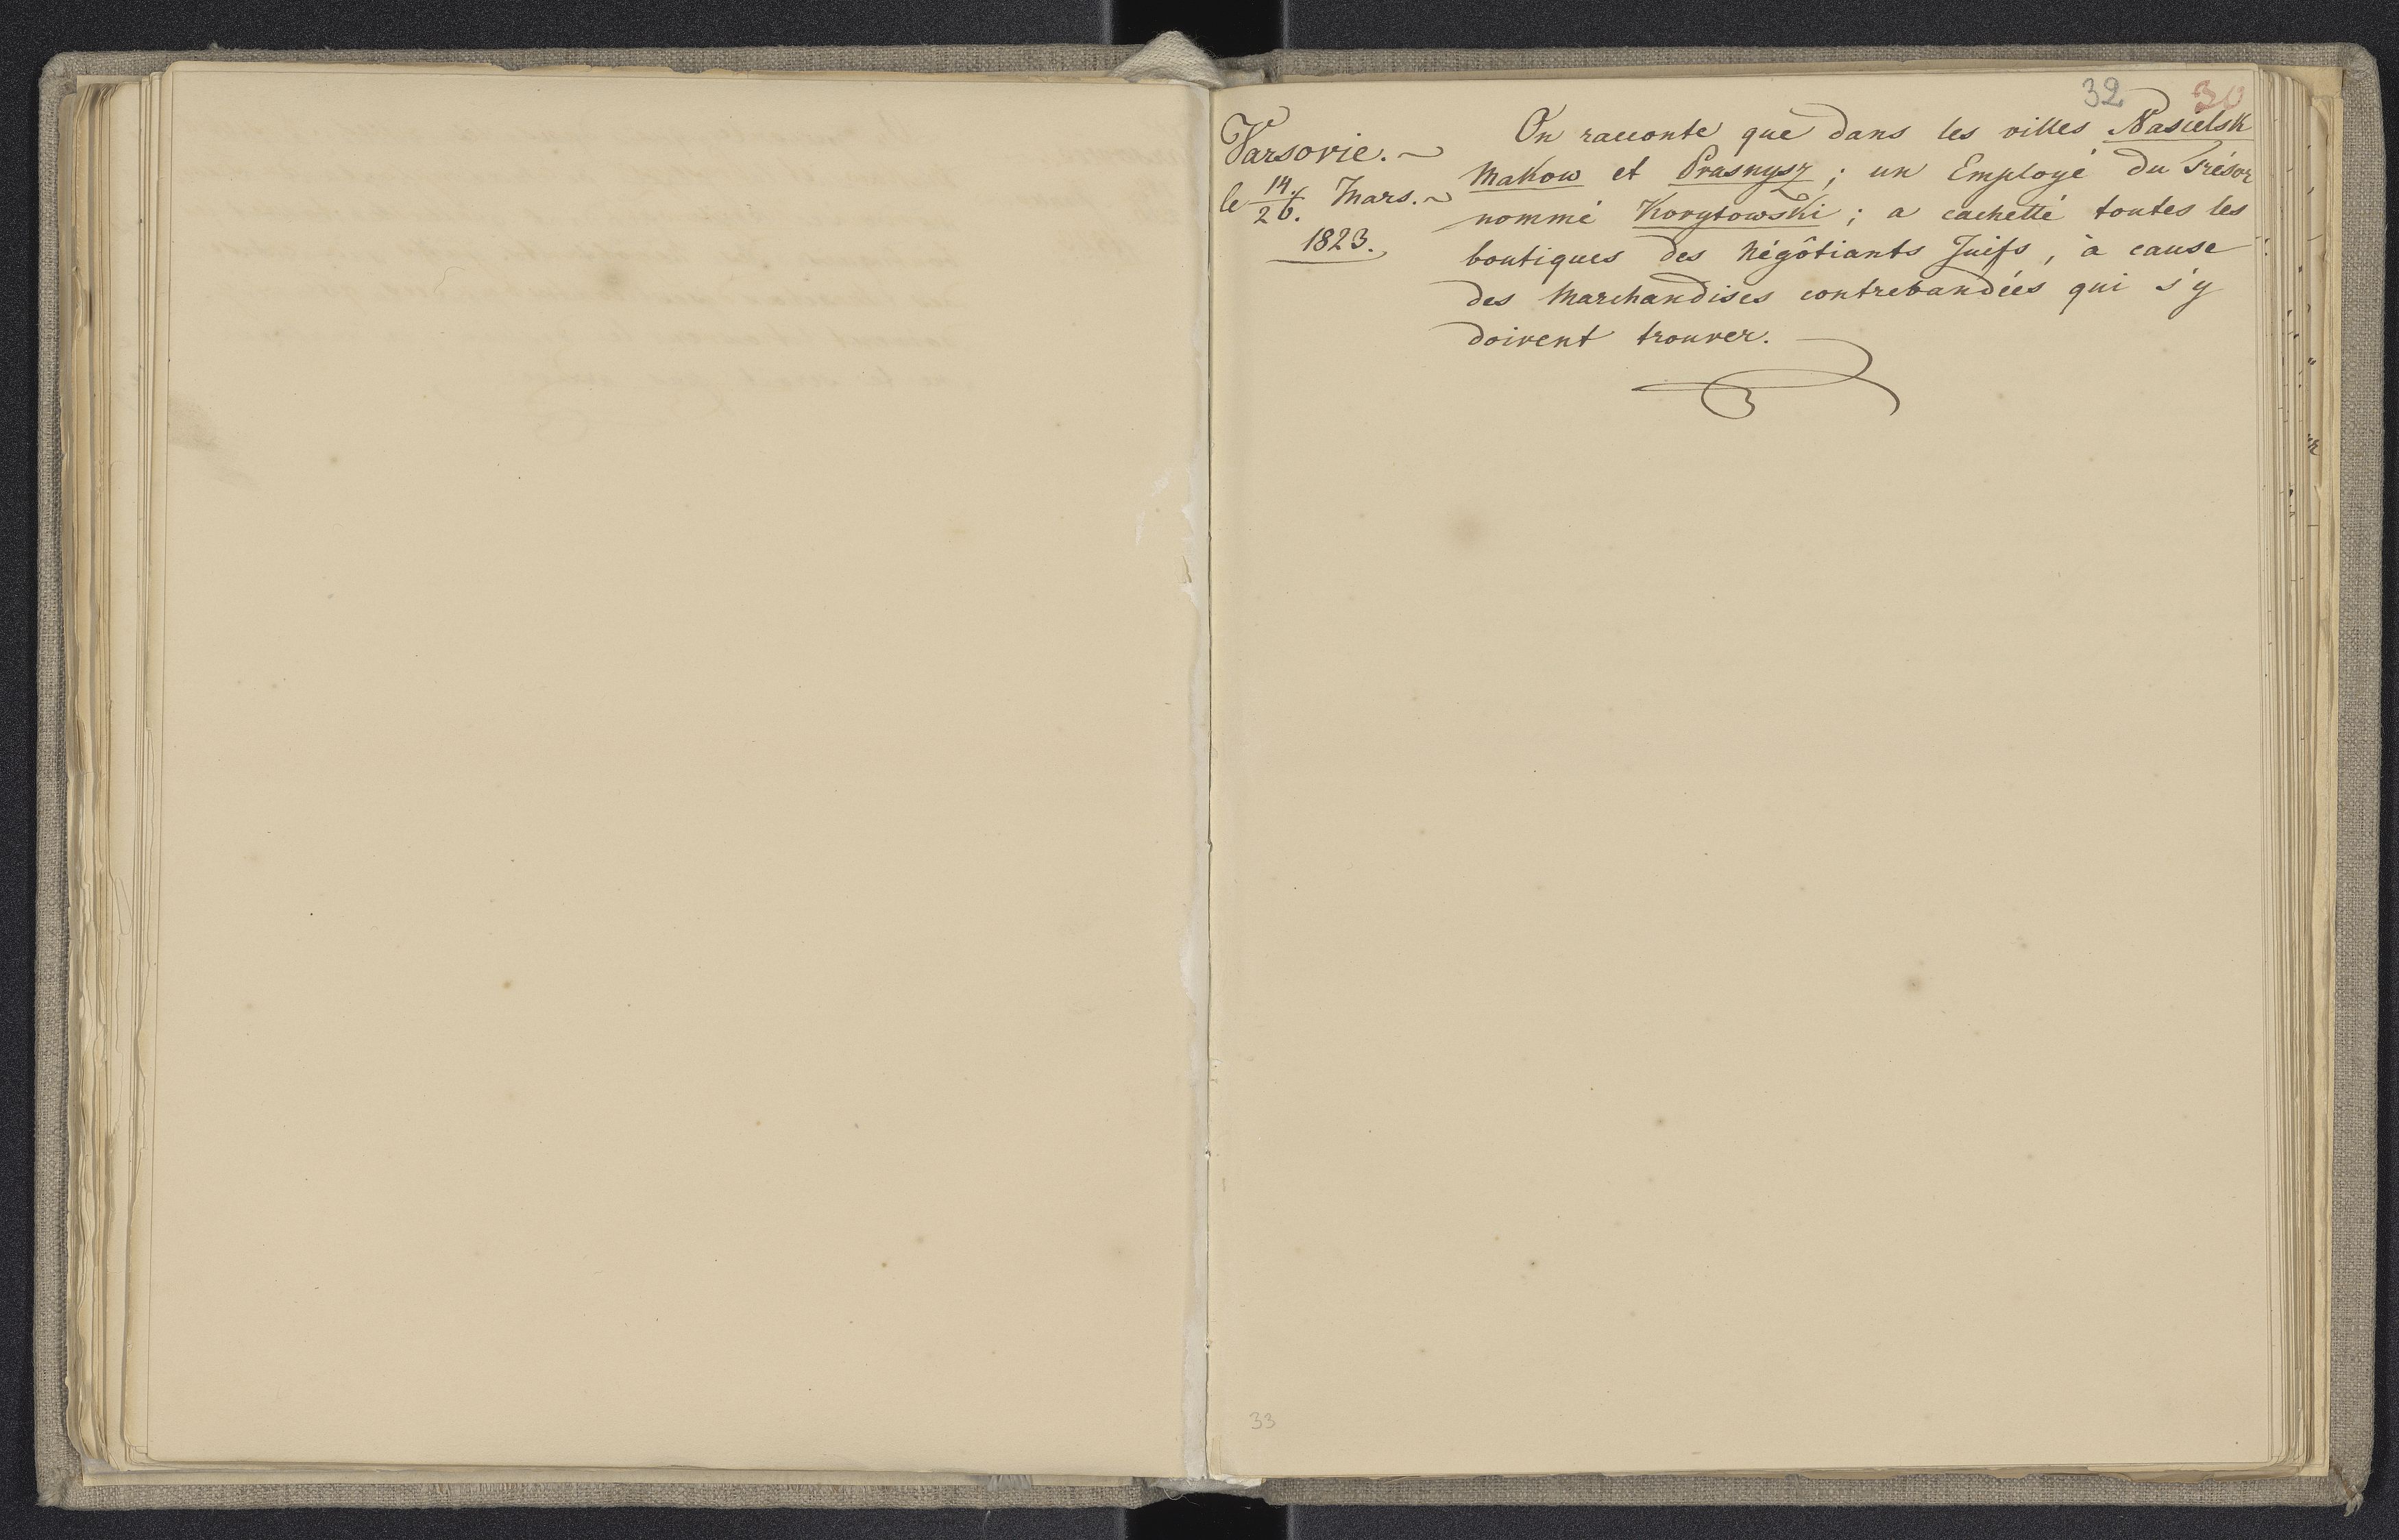 32 30
Varsovie.
le 14./26. Mars.
1823.
On racconte que dans les villes Nasielsk
Makow et Prasnysz ; un Employé du Trésor
nommé Korytowski ; a cachetté toutes les
boutiques des Négôtiants Juifs , à cause
des Marchandises contrebandées qui s'y
doivent trouver.
33